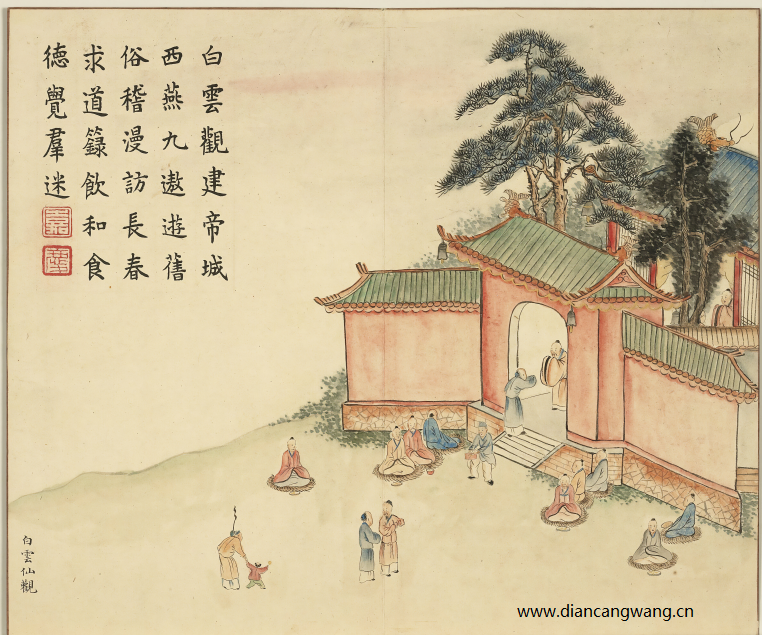 白雲觀建帝城
西燕九遨遊舊
俗稽漫訪長春
求道籙飲和食
德覺羣迷
白雲仙觀
www.diancangwang.cn